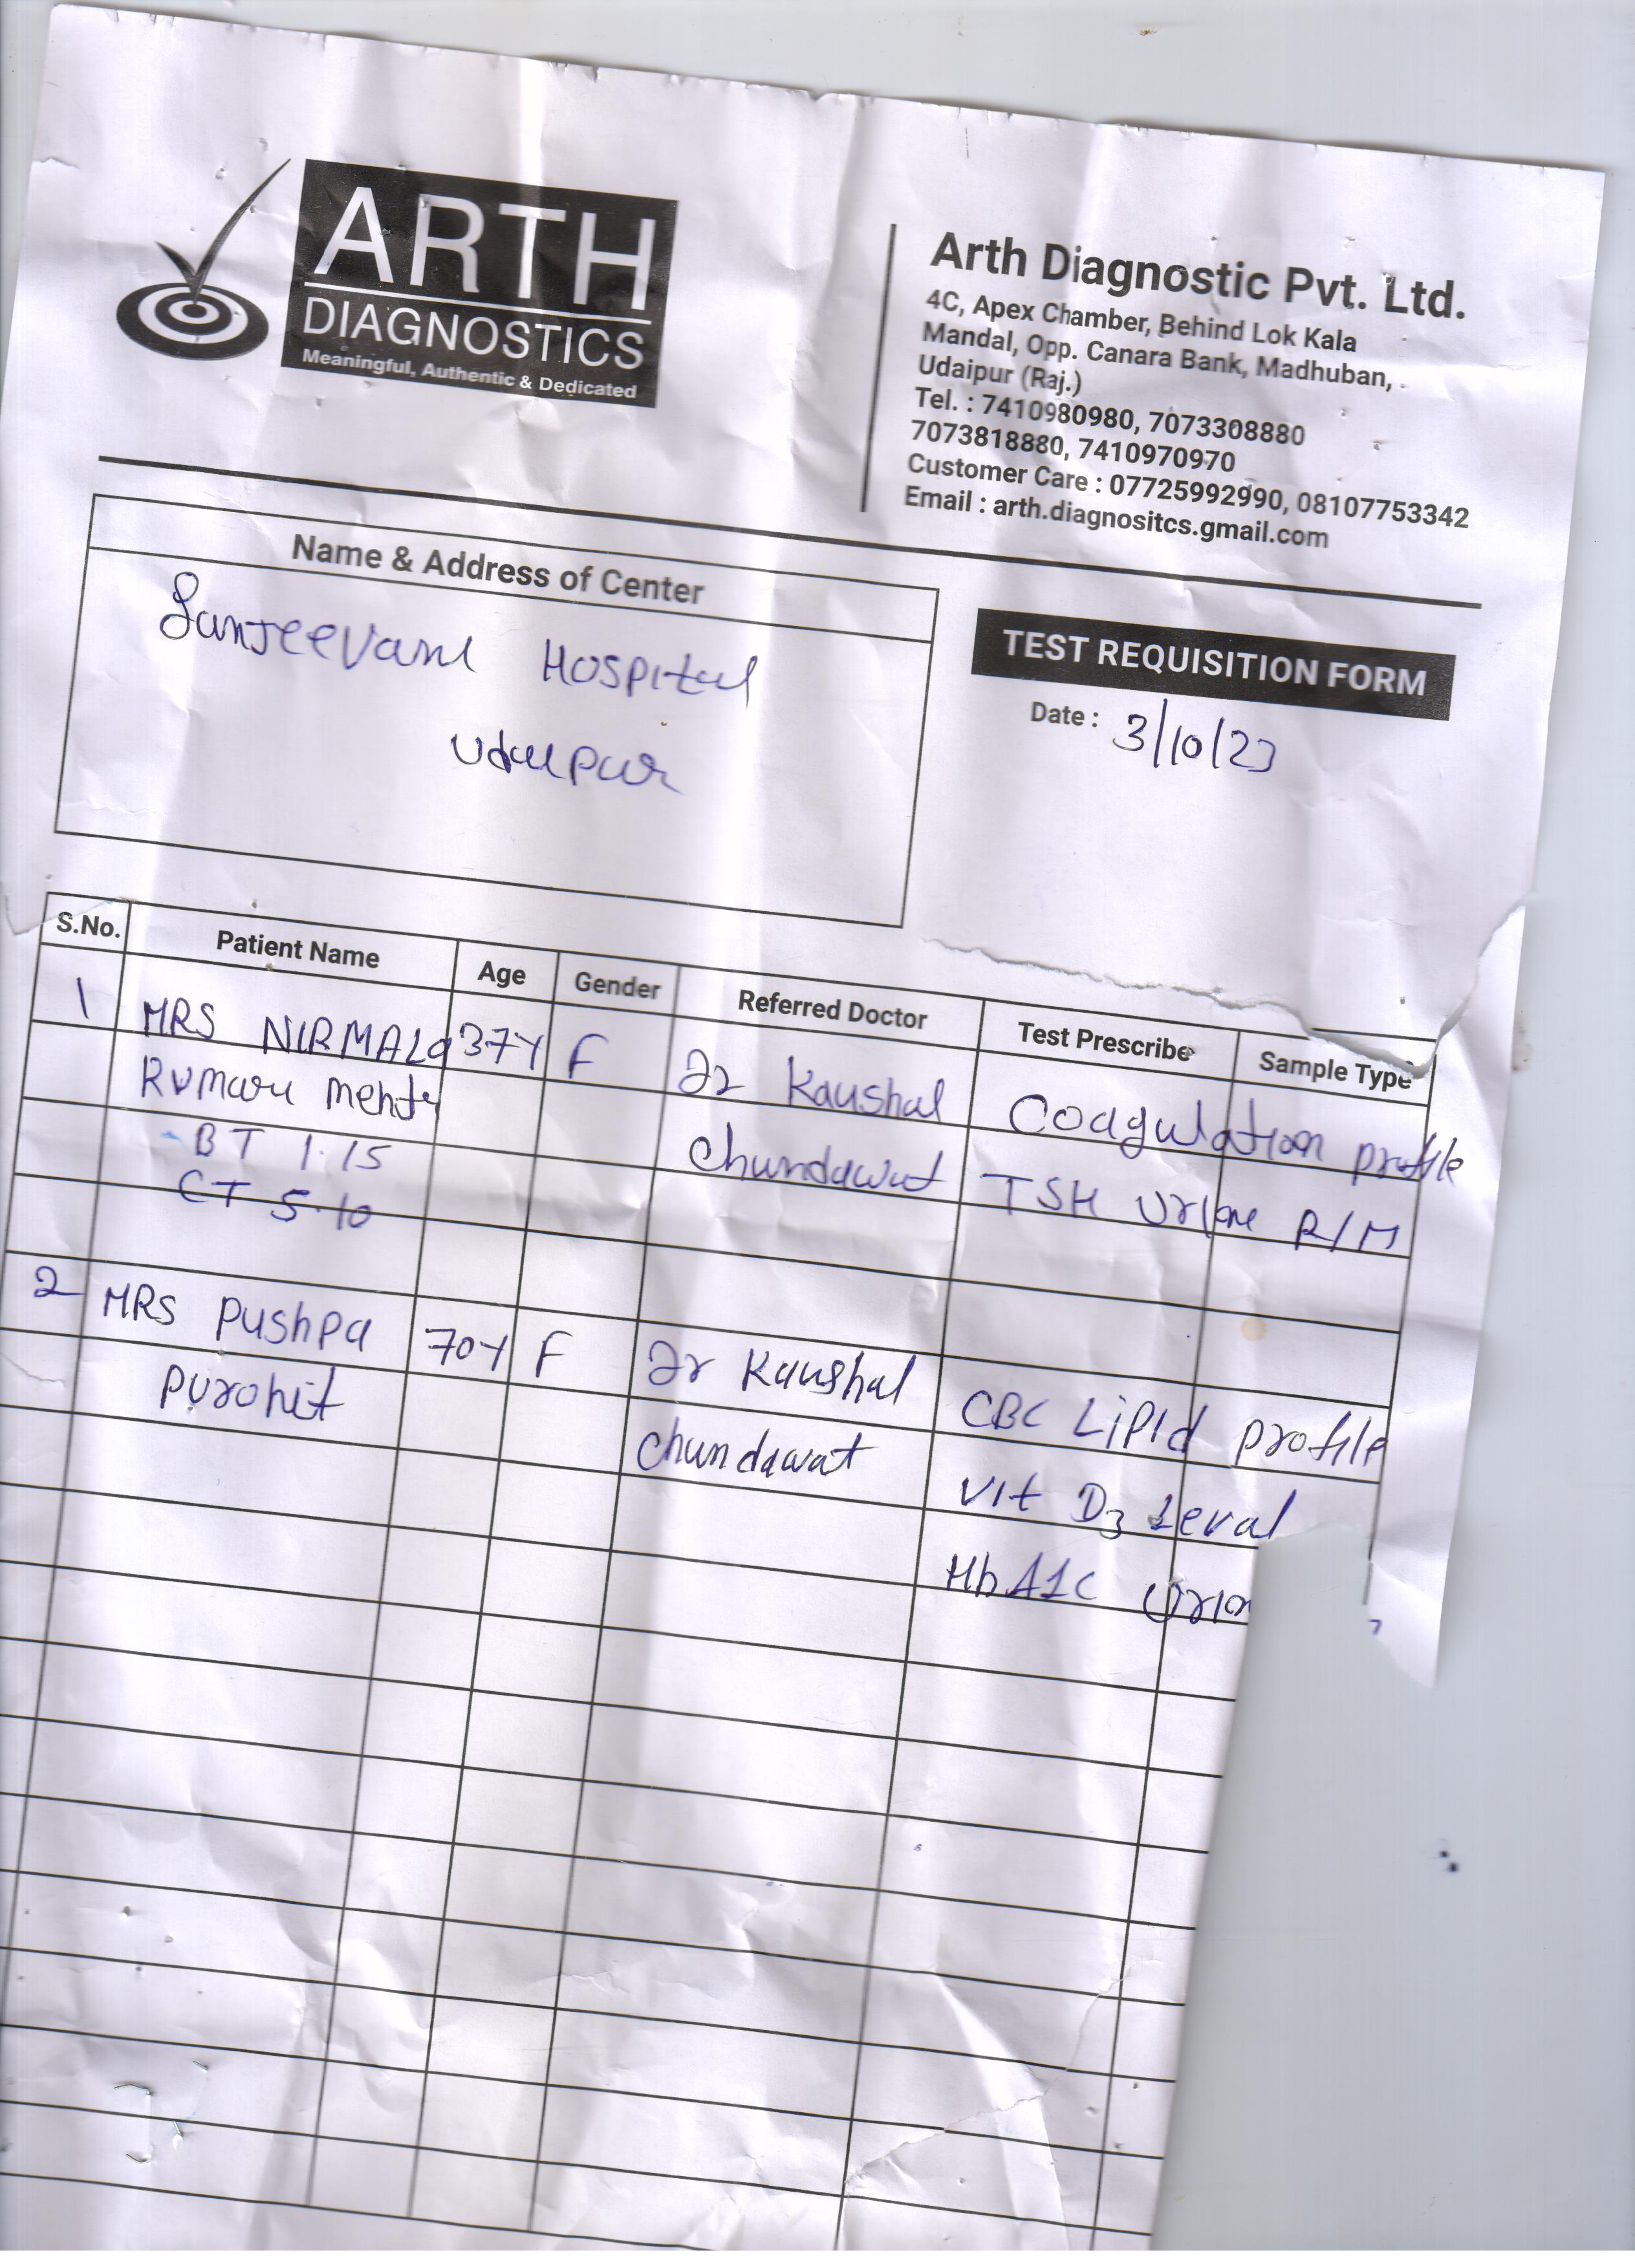 ARTH
DIAGNOSTICS
Meaningful, Authentic & Dedicated
Arth Diagnostic Pvt. Ltd.
4C, Apex Chamber, Behind Lok Kala
Mandal, Opp. Canara Bank, Madhuban,
Udaipur (Raj.)
Tel. : 7410980980, 7073308880
7073818880, 7410970970
Customer Care : 07725992990, 08107753342
Email : arth.diagnositcs.gmail.com
Name & Address of Center
Sanjeevani Hospital
Udaipur
TEST REQUISITION FORM
Date : 3/10/23
S.No. Patient Name Age Gender Referred Doctor Test Prescribe Sample Type
1 MRS NIRMALa 37Y F Dr Kaushal Coagulation profile
Kumari Mehta Chundawat TSH Urine R/M
BT 1.15
CT 5.10
2 MRS Pushpa 70Y F Dr Kaushal CBC Lipid profile
Purohit Chundawat Vit D3 Leval
HbA1C Urin